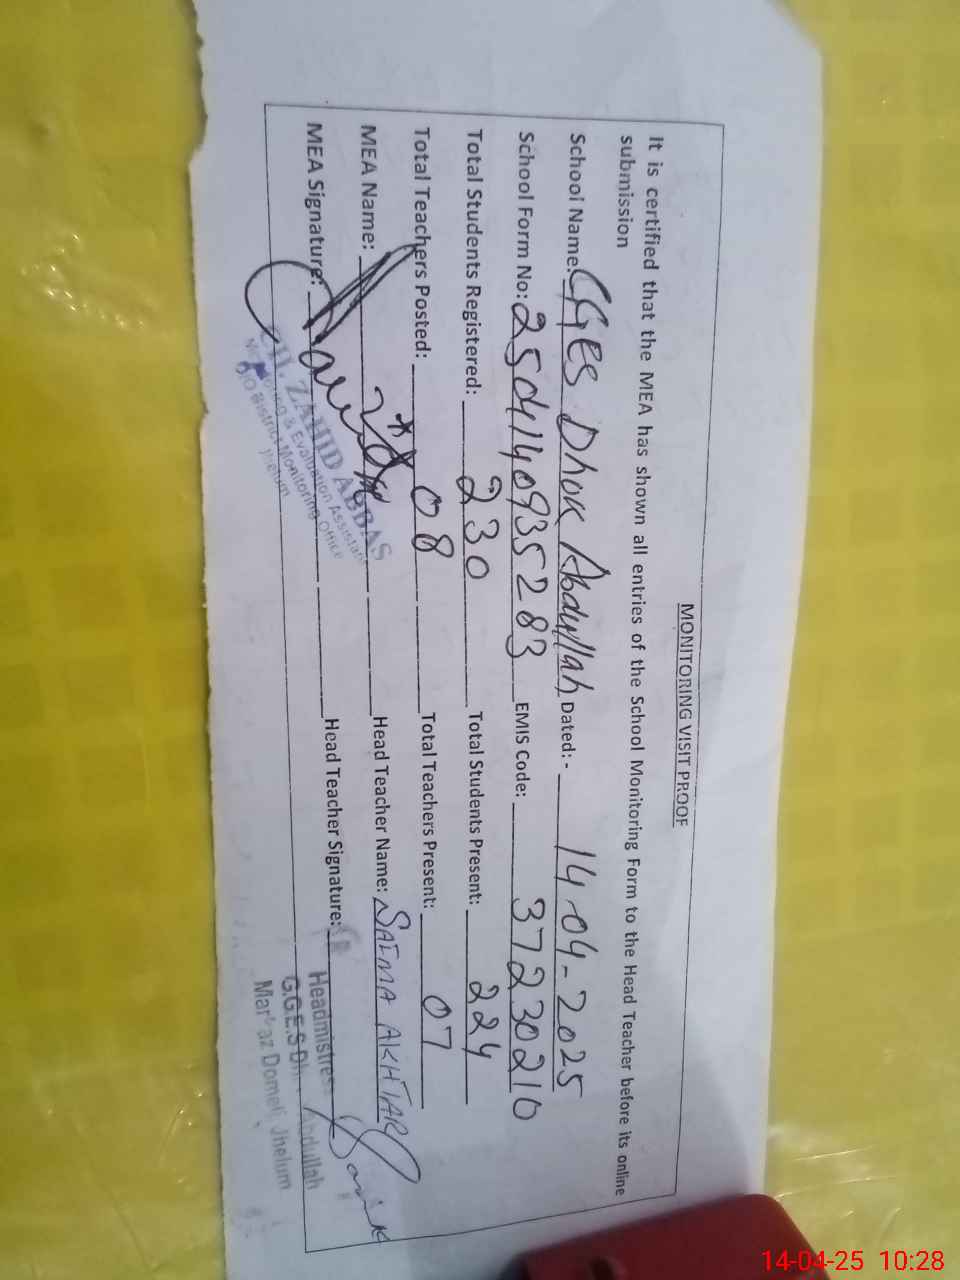 MONITORING VISIT PROOF
It is certified that the MEA has shown all entries of the School Monitoring Form to the Head Teacher before its online
submission
School Name: GGES Dhok Abdullah Dated:- 14-04-2025
School Form No: 2504140935283 EMIS Code: 37230210
Total Students Registered: 230 Total Students Present: 224
Total Teachers Posted: 08 Total Teachers Present: 07
MEA Name: Head Teacher Name: SAIMA AKHTAR
MEA Signature: Head Teacher Signature:
CH. ZAHID ABBAS
Monitoring & Evaluation Assistant
O/O District Monitoring Office
Jhelum
Headmistress
G.G.E.S Dhok Abdullah
Markaz Domeli Jhelum
14-04-25 10:28